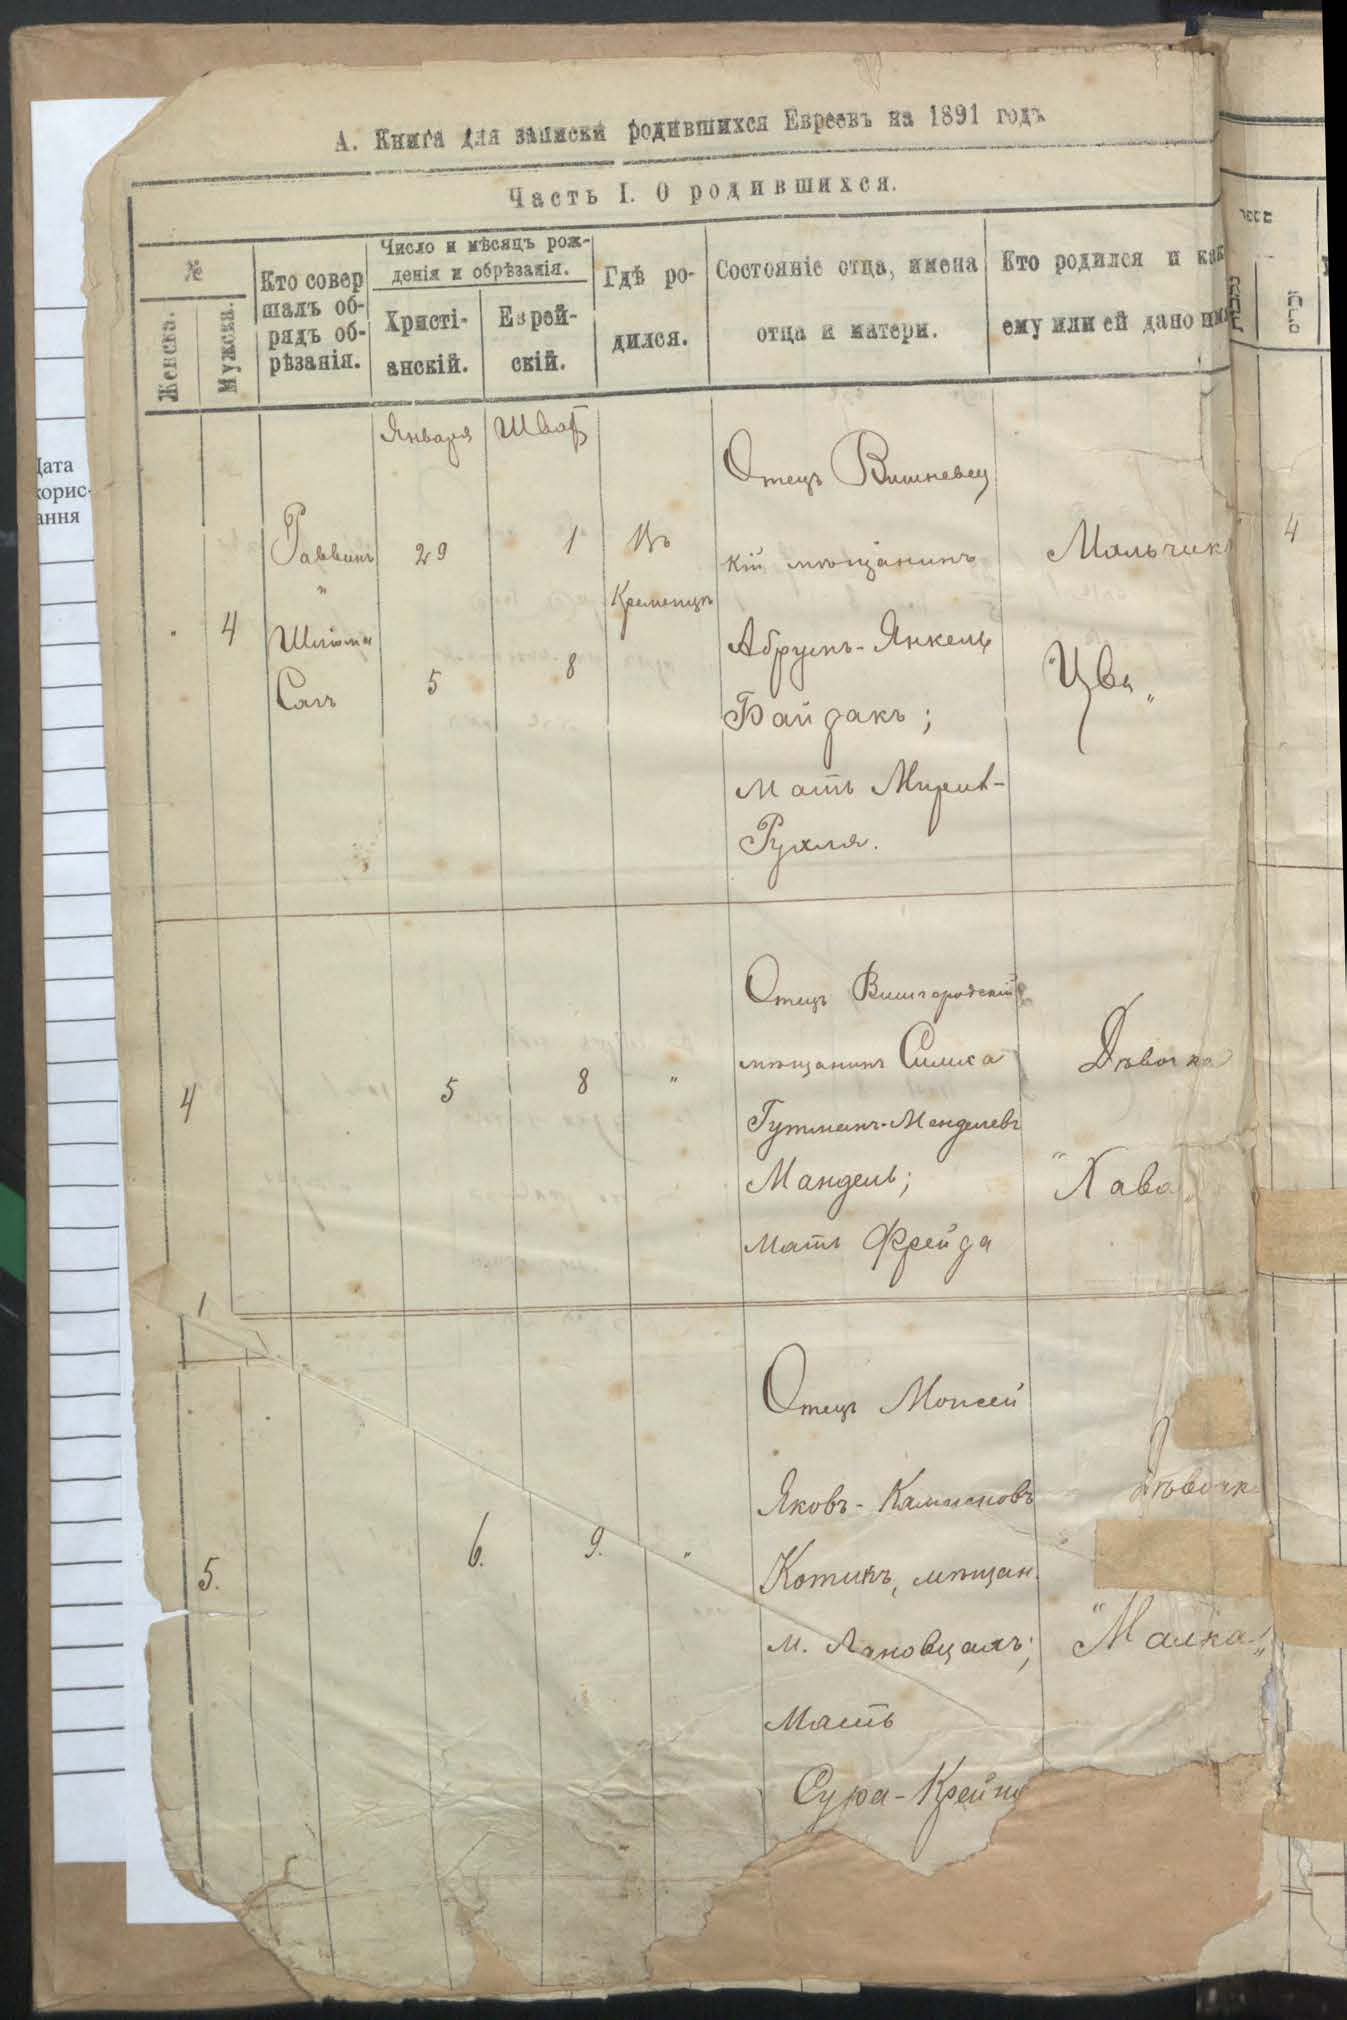 А. Книга для записки родившихся Евреевъ на 1891 годъ
Часть I. О родившихся.
№
Женска.
Мужска.
Кто совер
шалъ об-
рядъ об-
рѣзанія.
Число и мѣсяцъ рож-
денія и обрѣзанія.
Христі-
анскій.
Еврей-
скій.
Гдѣ ро-
дился.
Состояніе отца, имена
отца и матери.
Кто родился и как
ему или ей дано им
Января
Шват
"
4
Раввинъ
"
Шліома
Сагъ
29
5
1
8
Въ
Кременцѣ
Отецъ Вишневец
кій мѣщанинъ
Абрумъ-Янкель
Байдакъ;
Мать
Рухля.
Мальчик
4
5
8
"
Отецъ Вишгородскій
мѣщанинъ Симха
Гутманъ-Менделевъ
Мандель;
Мать Фрейда
Дѣвочка
"Хава"
1
5.
6.
9.
"
Отецъ Моисей
Яковъ-
Котикъ, мѣщан.
м. Лановцахъ;
Мать
Сура-Крейн
Дѣвочк
"Малка"
4
Дата
корис-
ання